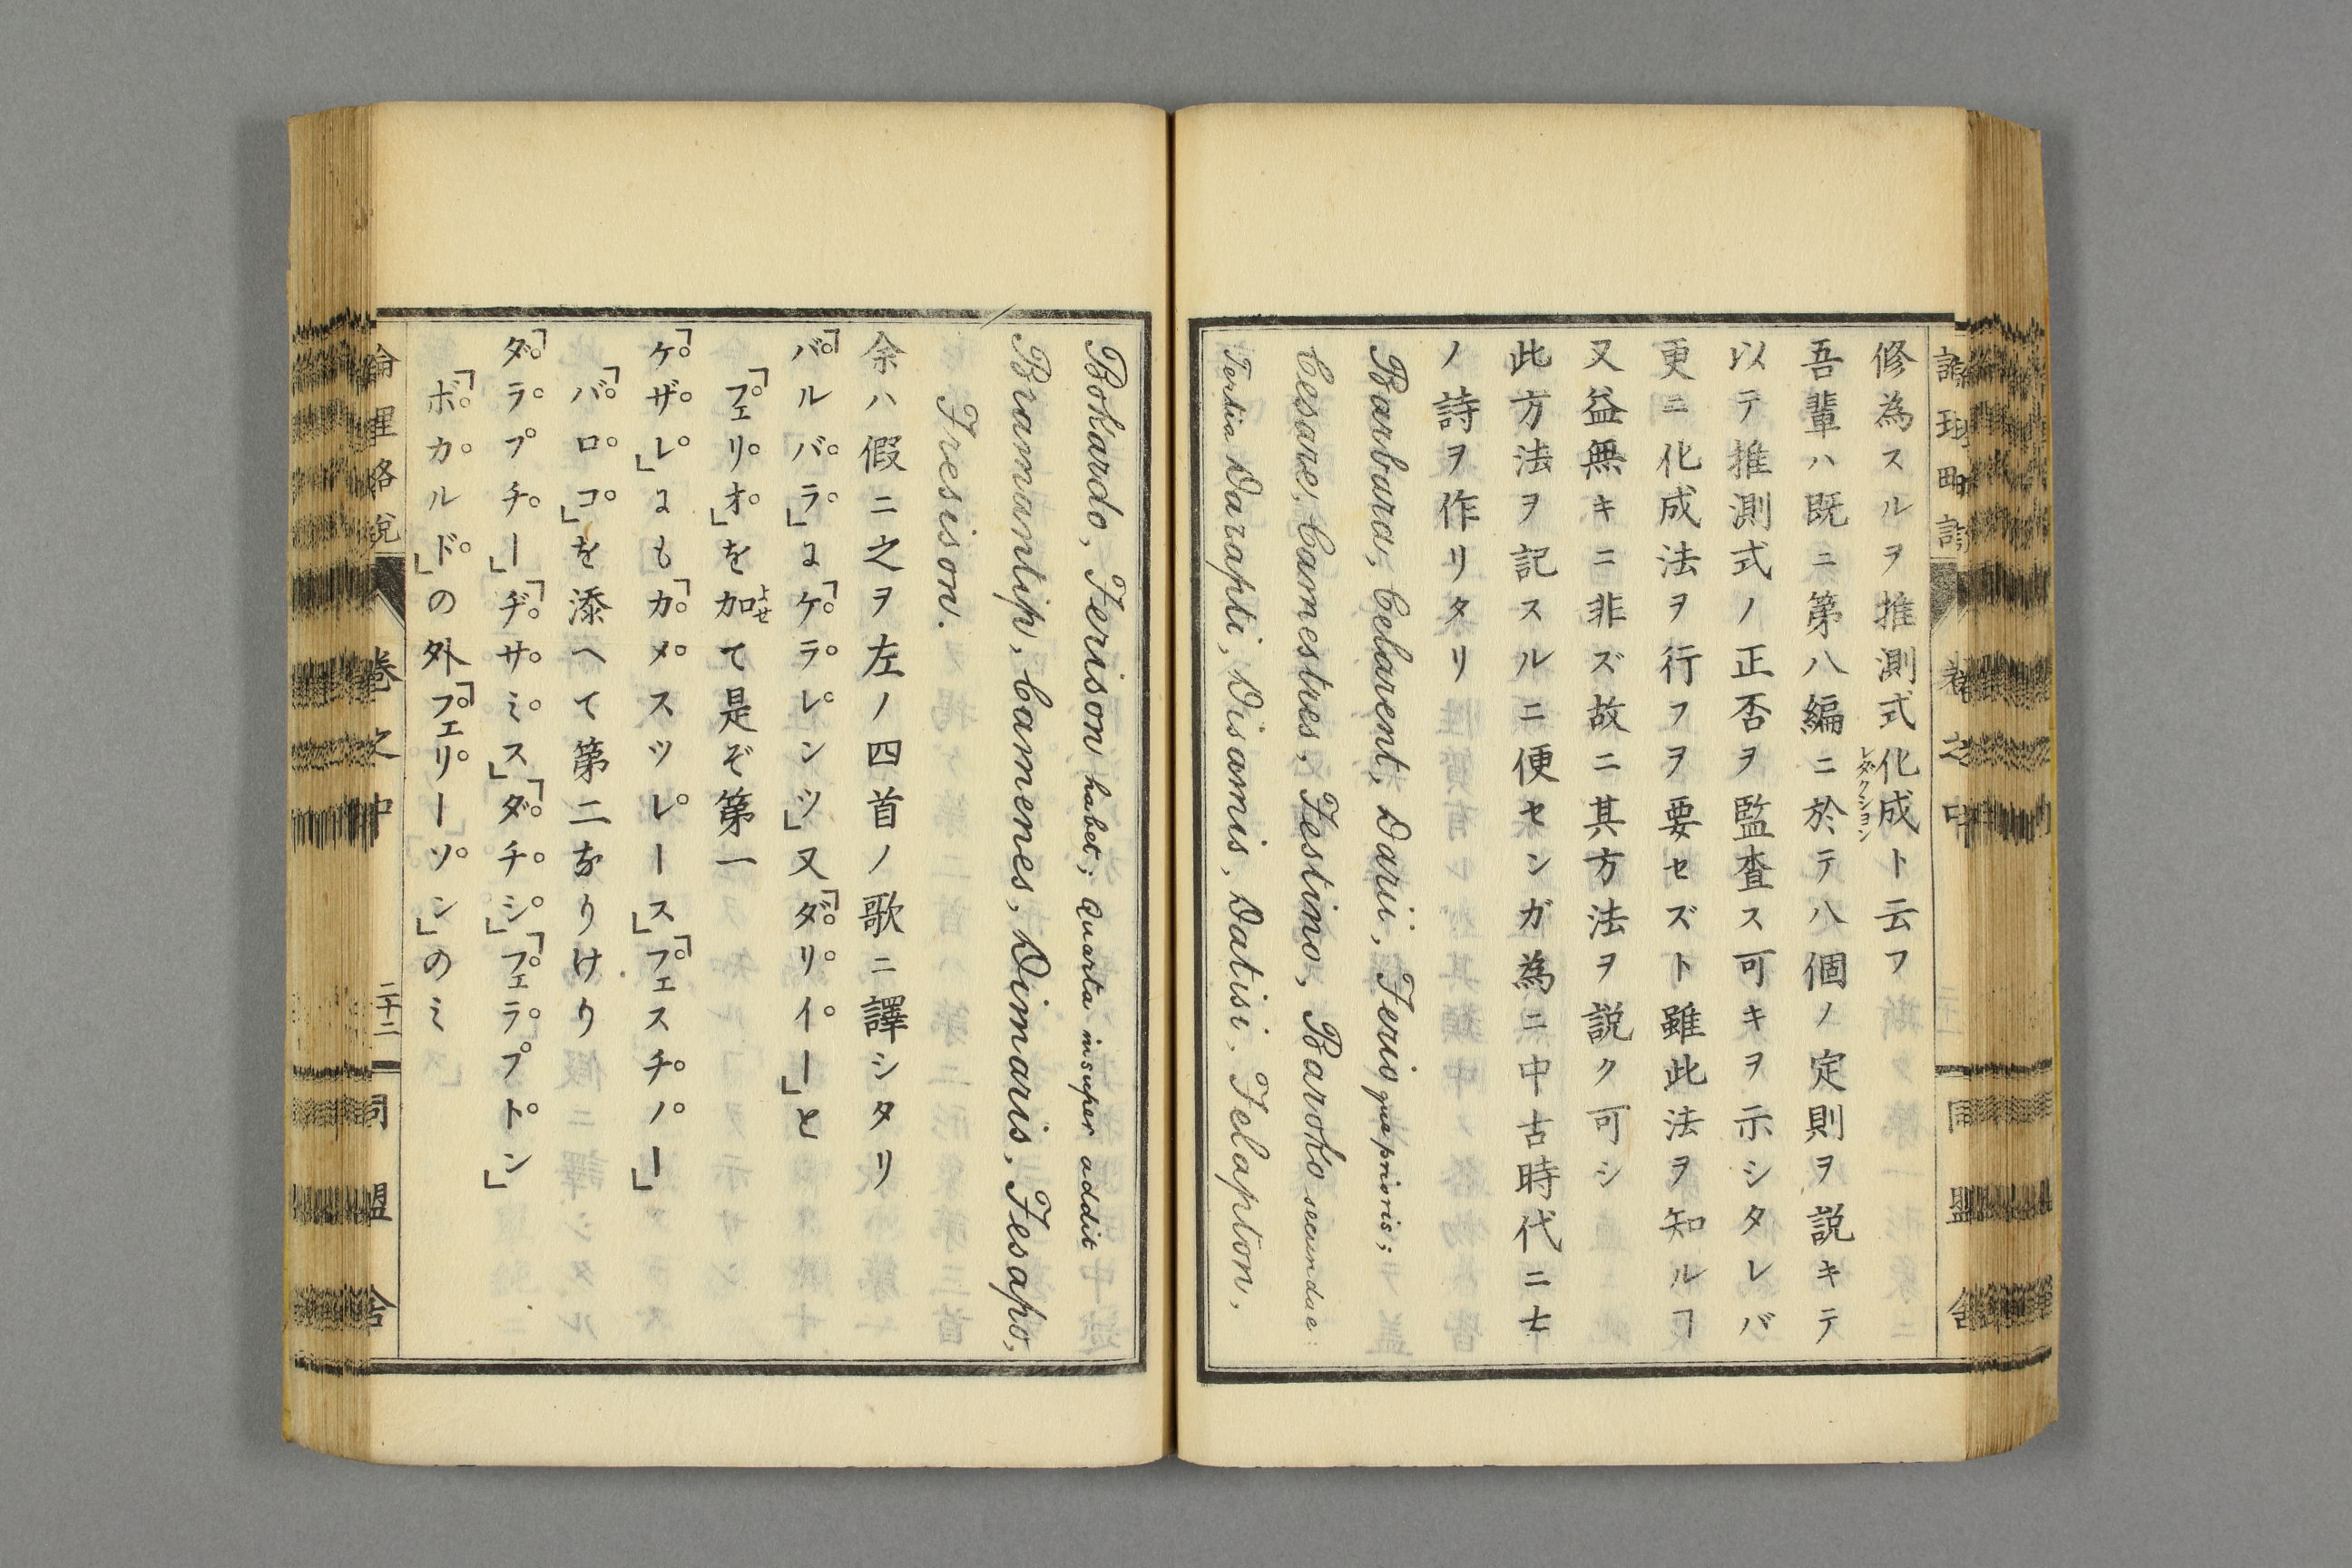 修為スルヲ推測式化成ト云フ
レダクション
吾輩ハ既ニ第八編ニ於テ八個ノ定則ヲ説キテ
以テ推測式ノ正否ヲ監査ス可キヲ示シタレバ
更ニ化成法ヲ行フヲ要セズト雖此法ヲ知ルヿ
又益無キニ非ズ故ニ其方法ヲ説ク可シ
此方法ヲ記スルニ便センガ為ニ中古時代ニ左
ノ詩ヲ作リタリ
Barbara, Celarent, Darii, Ferio que prioris;
Cesare, Camestres, Festino, Baroko secundae:
Tertia Darapti, Disamis, Datisi, Felapton,
Bokardo, Ferison habet; Quarta insuper addit
Bramantip, Camenes, Dimaris, Fesapo,
Fresison.
余ハ假ニ之ヲ左ノ四首ノ歌ニ譯シタリ
「バルバラ」に「ケラレンツ」又「ダリイー」と
「フェリオ」を加て是ぞ第一
よせ
「ケザレ」にも「カメスツレース」「フェスチノー」
「バロコ」を添へて第二なりけり
「ダラプチー」「ヂサミス」「ダチシ」「フェラプトン」
「ボカルド」の外「フェリーソン」のミ
論理略説 卷之中 二十二 同盟舍
卷之中 同盟舍